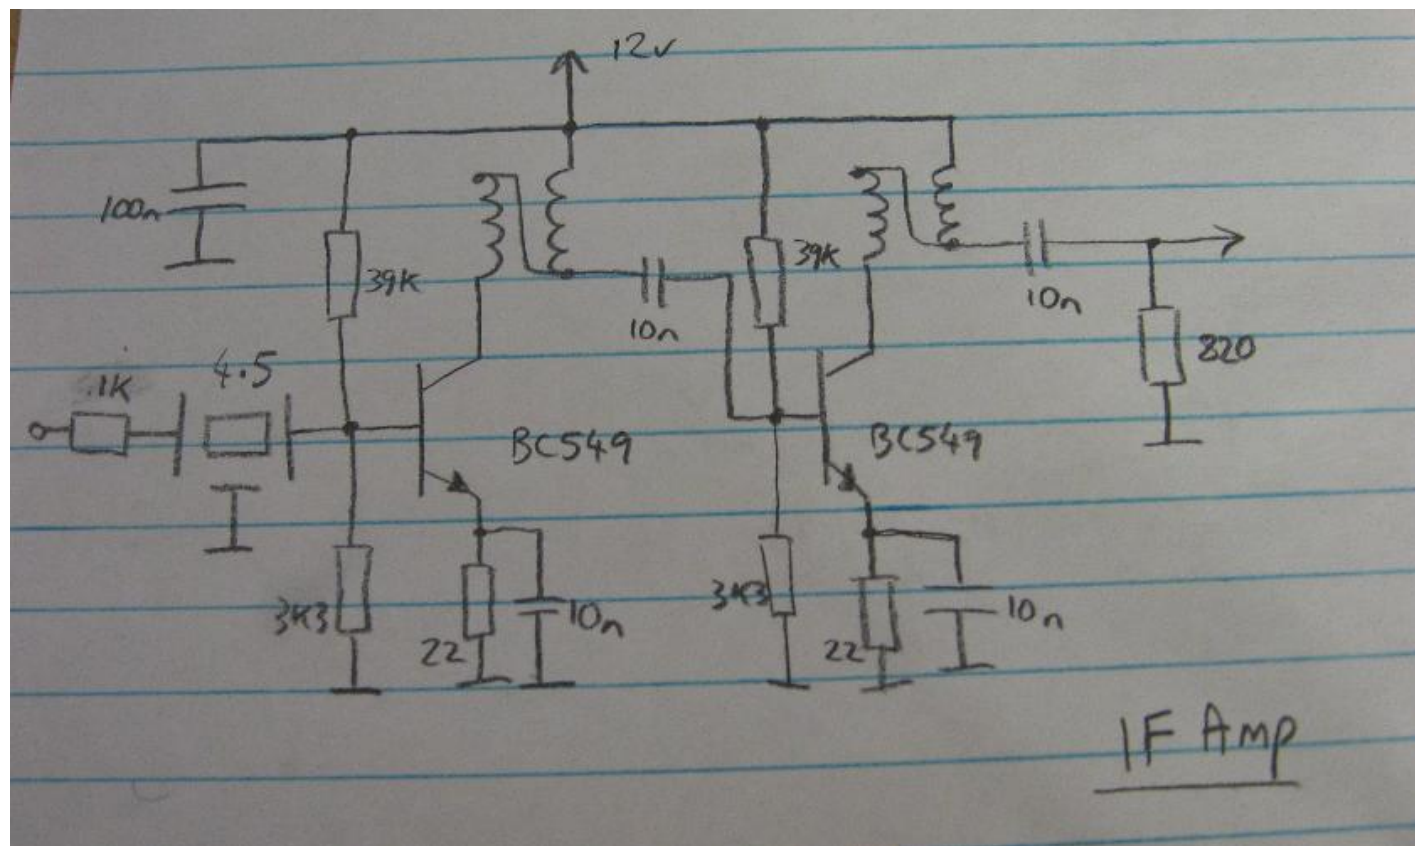 12v
100n
39K
39K
10n
10n
820
1K
4.5
BC549
BC549
3K3
22
10n
3K3
22
10n
IF Amp